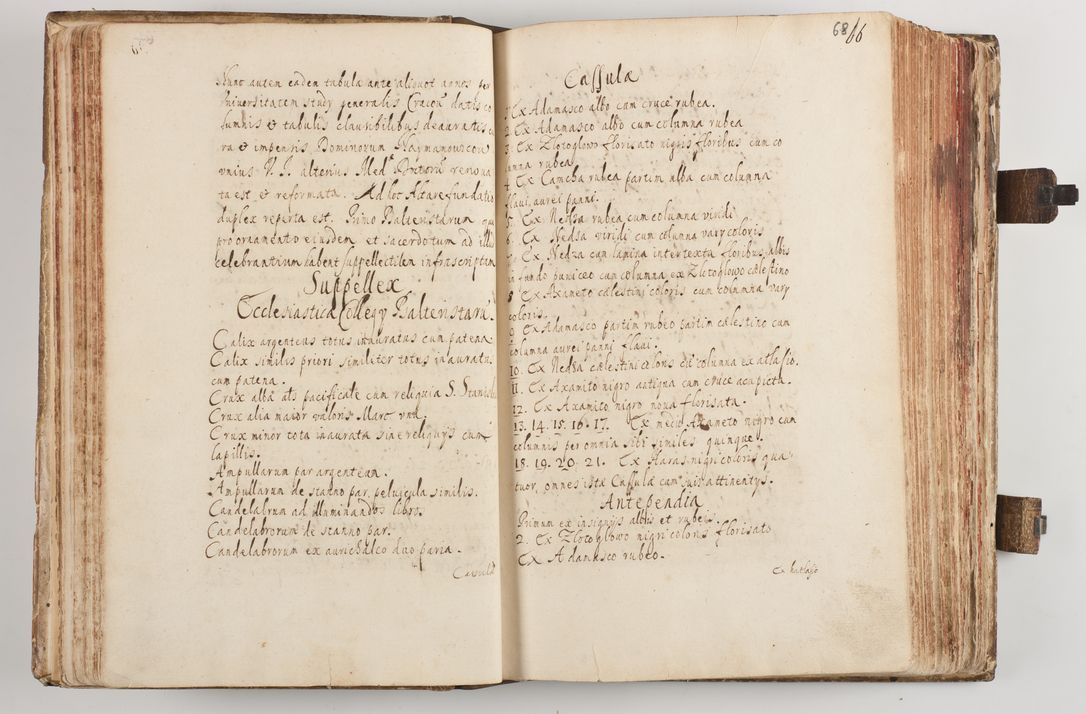 Nunc autem eadem tabula ante aliquot annos per
Universitatem study generalis Cracou datis co
lumnis et tabulis clausibilibus deauratis cu
ra et impensis Dominorum Naymanowicou
unius V. I. alterius Med. Doctoru renoua
ta est et reformata. Ad hoc Altare fundatio
duplex reperta est. Primo Psalteristarum qui
pro ornamento eiusdem et sacerdotum ad illud
celebrantium habent suppellectilem infrascriptam
Suppellex
Ecclesiastica Collegy Psalteristaru
Calix argenteus totus inauratus cum patena
Calix similis priori similiter totus inauratus
cum patena.
Crux alba als pacificale cum reliquia S. Stanislai
Crux alia maior valoris Marc.
Crux minor tota inaurata sine reliquys cum
lapillis.
Ampullarum par argenteum.
Ampullarum de stanno par. peluicula similis.
Candelabrum ad illuminandos libros.
Candelabrorum de stanno par.
Candelabrorum ex aurichalco duo paria.
Cassula
68 66
Cassula
1 Ex Adamasco albo cum cruce rubea.
2. Ex Adamasco albo cum columna rubea
3. Ex Zlotoglow florisato nigris floribus cum co
lumna rubea
4 Ex Camcha rubea partim alba cum columna
flaui aurei panni.
5. Ex Nedsa rubea cum columna viridi
6. Ex Nedsa viridi cum columna vary coloris
7. Ex Nedza cum lamina intertexta floribus albis
in fundo puniceo cum columna ex Zlotoglowo cælestino
8 Ex Axameto cælestini coloris cum columna vary
coloris.
9 Ex Adamasco partim rubeo partim cælestino cum
columna aurei panni flaui.
10. Ex Nedsa cælestini coloris cu columna ex atlasio.
11. Ex Axamito nigro antiqua cum cruce acu picta.
12. Ex Axamito nigro noua florisata.
13. 14. 15. 16. 17. Ex medio Axameto nigro cum
columnis per omnia sibi similes quinque.
18. 19. 20. 21. Ex Haras nigri coloris qua
tuor, omnes istæ Cassulæ cum suis attinentys.
Antependia
Primum ex insignys albis et rubeis.
2. Ex Zlotoglowo nigri coloris florisato
Ex Adamasco rubeo.
Ex hatlasio